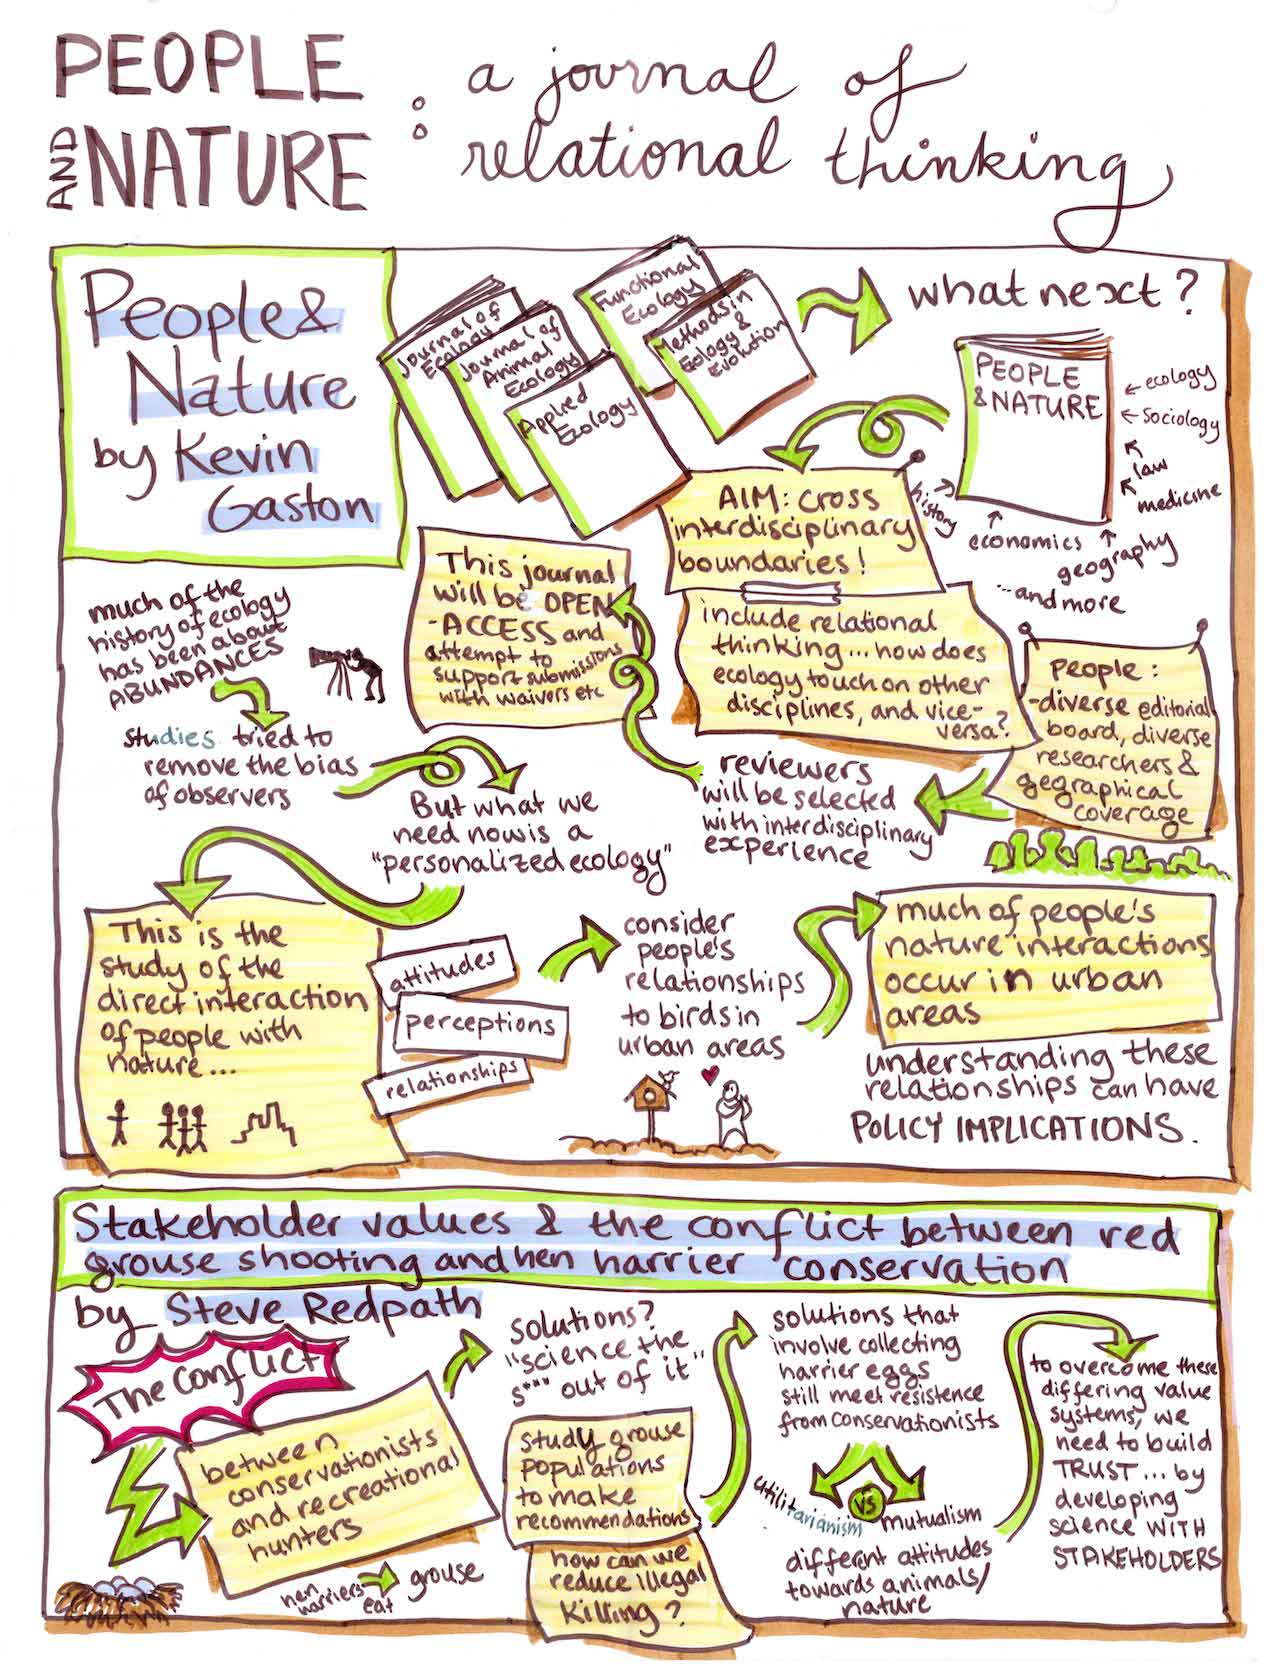 PEOPLE
AND NATURE
: a journal of
relational thinking
People &
Nature
by Kevin
Gaston
Journal of
Ecology
Journal of
Animal
Ecology
Applied
Ecology
Functional
Ecology
Methods in
Ecology &
Evolution
what next?
PEOPLE
& NATURE
ecology
sociology
law
medicine
history
economics
geography
...and more
AIM: CROSS
interdisciplinary
boundaries!
include relational
thinking... how does
ecology touch on other
disciplines, and vice-
versa?
People:
-diverse editorial
board, diverse
researchers &
gegraphical
coverage
reviewers
will be selected
with interdisciplinary
experience
This journal
will be OPEN
-ACCESS and
attempt to
support submissions
with waivers etc
much of the
history of ecology
has been about
ABUNDANCES
studies tried to
remove the bias
of observers
But what we
need now is a
"personalized ecology"
This is the
study of the
direct interaction
of people with
nature...
attitudes
perceptions
relationships
consider
people's
relationships
to birds in
urban areas
much of people's
nature interactions
occur in urban
areas
understanding these
relationships can have
POLICY IMPLICATIONS.
Stakeholder values & the conflict between red
grouse shooting and hen harrier conservation
by Steve Redpath
The Conflict
between
conservationists
and recreational
hunters
hen
harriers eat grouse
solutions?
"science the
s*** out of it"
study grouse
populations
to make
recommendations
how can we
reduce illegal
killing?
solutions that
involve collecting
harrier eggs
still meet resistence
from conservationists
utilitarianism VS mutualism
different attitudes
towards animals/
nature
to overcome these
differing value
systems, we
need to build
TRUST... by
developing
science WITH
STAKEHOLDERS